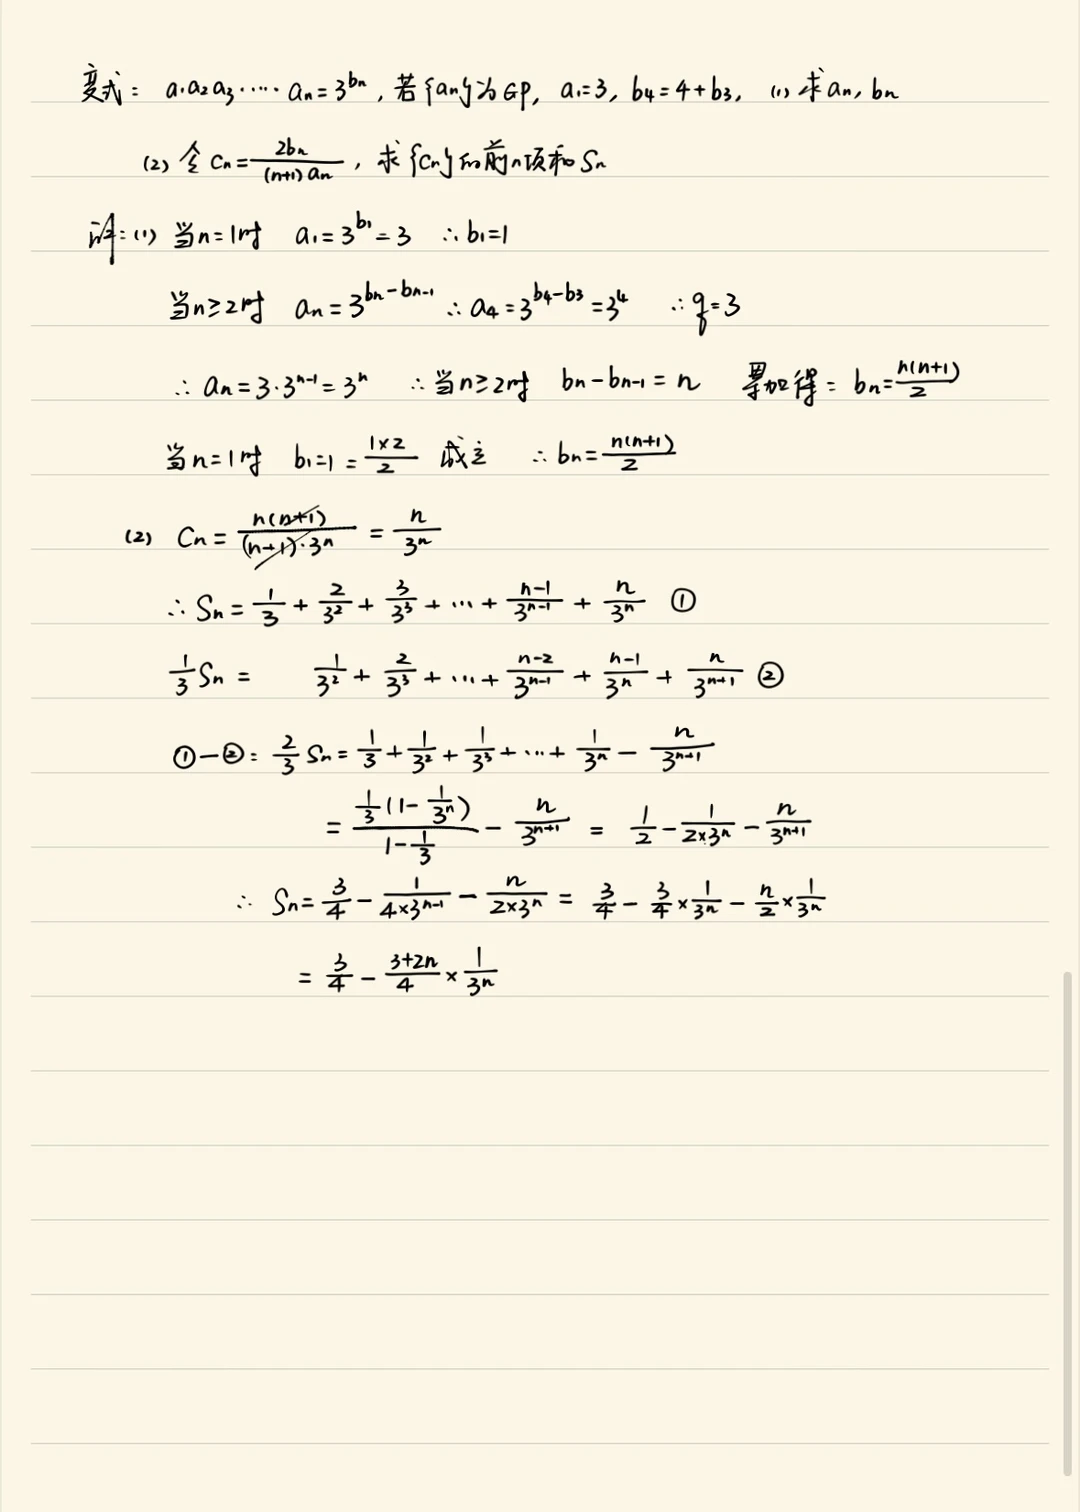 变式: a₁a₂a₃⋯⋯aₙ=3^{bₙ}, 若{aₙ}为GP, a₁=3, b₄=4+b₃, (1) 求aₙ, bₙ
(2) 令Cₙ=\frac{2bₙ}{(n+1)aₙ}, 求{Cₙ}的前n项和Sₙ
解:(1) 当n=1时 a₁=3^{b₁}=3 ∴b₁=1
当n≥2时 aₙ=3^{bₙ-bₙ₋₁} ∴a₄=3^{b₄-b₃}=3⁴ ∴q=3
∴aₙ=3·3^{n-1}=3^n ∴当n≥2时 bₙ-bₙ₋₁=n 累加得: bₙ=\frac{n(n+1)}{2}
当n=1时 b₁=1=\frac{1×2}{2} 成立 ∴bₙ=\frac{n(n+1)}{2}
(2) Cₙ=\frac{n(n+1)}{(n+1)·3^n}=\frac{n}{3^n}
∴Sₙ=\frac{1}{3}+\frac{2}{3²}+\frac{3}{3³}+⋯+\frac{n-1}{3^{n-1}}+\frac{n}{3^n} ①
\frac{1}{3}Sₙ= \frac{1}{3²}+\frac{2}{3³}+⋯+\frac{n-2}{3^{n-1}}+\frac{n-1}{3^n}+\frac{n}{3^{n+1}} ②
①-②: \frac{2}{3}Sₙ=\frac{1}{3}+\frac{1}{3²}+\frac{1}{3³}+⋯+\frac{1}{3^n}-\frac{n}{3^{n+1}}
=\frac{\frac{1}{3}(1-\frac{1}{3^n})}{1-\frac{1}{3}}-\frac{n}{3^{n+1}}=\frac{1}{2}-\frac{1}{2×3^n}-\frac{n}{3^{n+1}}
∴ Sₙ=\frac{3}{4}-\frac{1}{4×3^{n-1}}-\frac{n}{2×3^n}=\frac{3}{4}-\frac{3}{4}×\frac{1}{3^n}-\frac{n}{2}×\frac{1}{3^n}
=\frac{3}{4}-\frac{3+2n}{4}×\frac{1}{3^n}